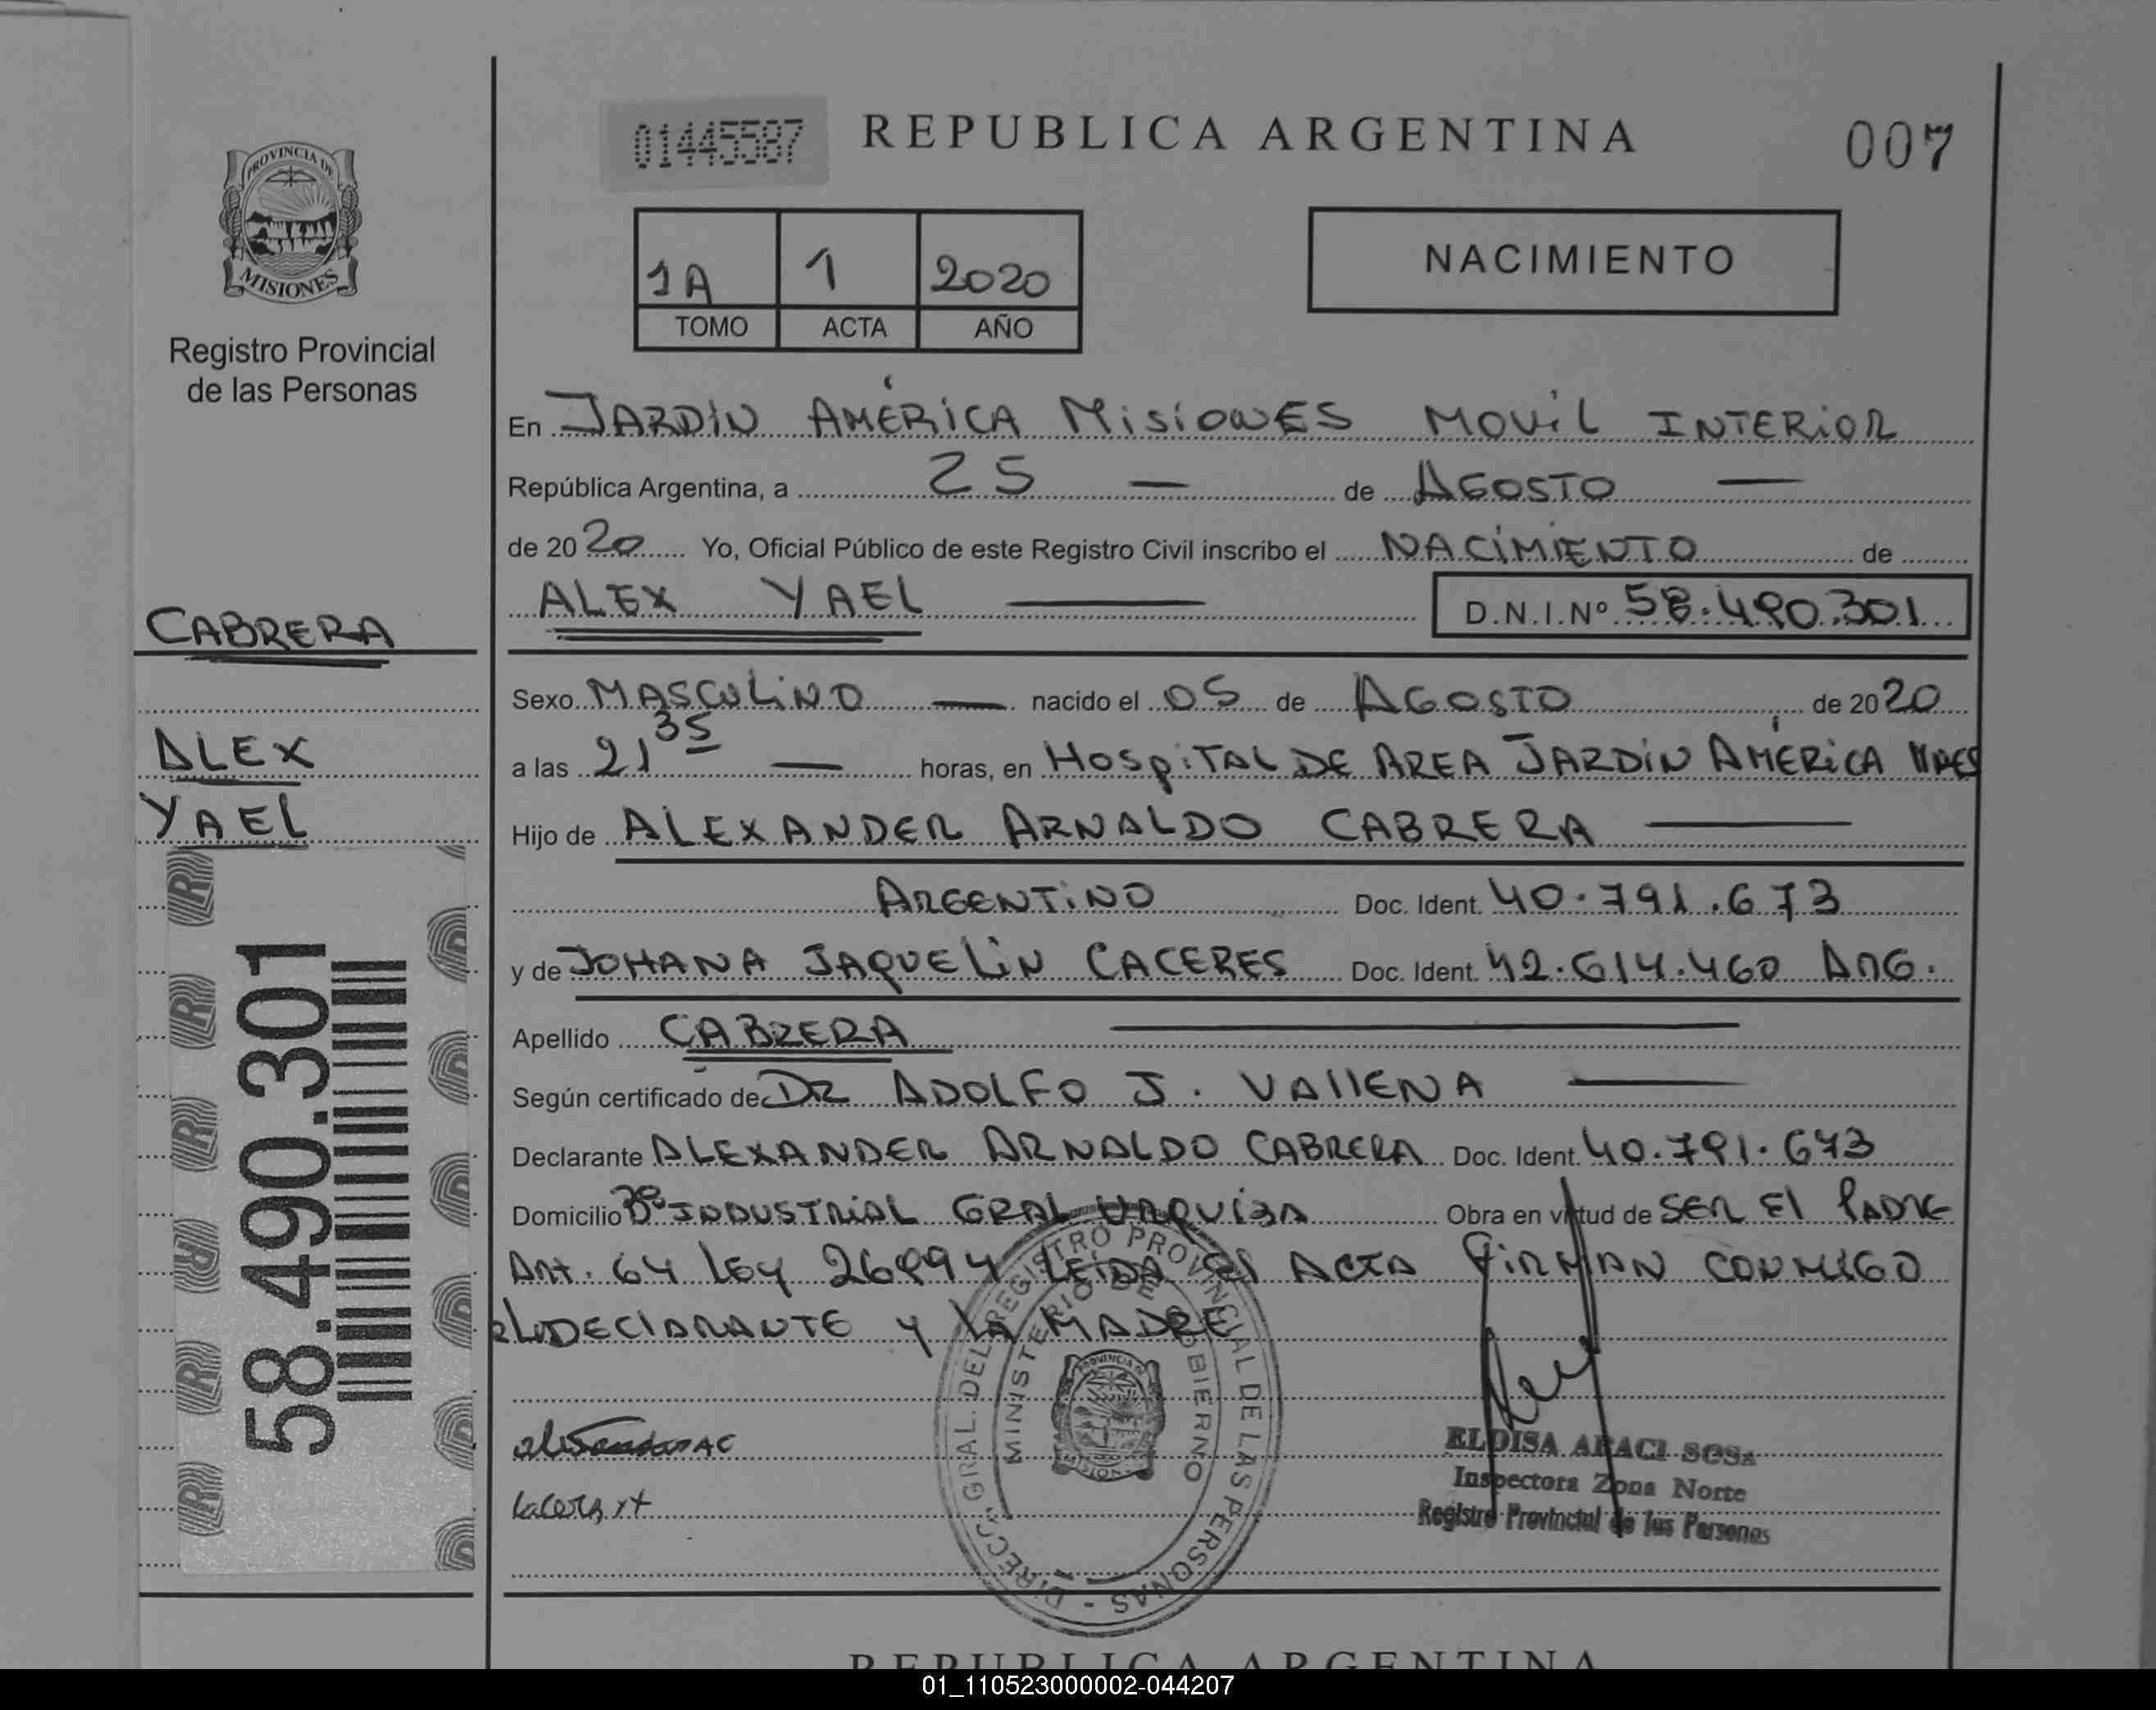 01445587 REPUBLICA ARGENTINA 007
PROVINCIA DE
MISIONES
Registro Provincial
de las Personas
1A 1 2020
TOMO ACTA AÑO
NACIMIENTO
En JARDIN AMÉRICA MISIONES MOVIL INTERIOR
República Argentina, a 25 — de AGOSTO —
de 2020 Yo, Oficial Público de este Registro Civil inscribo el NACIMIENTO de
ALEX YAEL — D.N.I.Nº 58.490.301
CABRERA
ALEX
YAEL
58.490.301
Sexo MASCULINO — nacido el 05 de AGOSTO de 2020
a las 21 35 — horas, en HOSPITAL DE AREA JARDIN AMÉRICA
Hijo de ALEXANDER ARNALDO CABRERA —
ARGENTINO Doc. Ident. 40.791.673
y de JOHANA JAQUELIN CACERES Doc. Ident. 42.614.460 ARG.
Apellido CABRERA —
Según certificado de DR ADOLFO J. VALLENA —
Declarante ALEXANDER ARNALDO CABRERA Doc. Ident. 40.791.673
Domicilio Bº INDUSTRIAL GRAL URQUIZA Obra en virtud de SER El PADRE
Art. 64 Ley 26994 LEIDA El ACTA FIRMAN CONMIGO
El DECLARANTE y LA MADRE
DIRECC. GRAL. DEL REGISTRO PROVINCIAL DE LAS PERSONAS -
MINISTERIO DE GOBIERNO
ELOISA ARACI SOSA
Inspectora Zona Norte
Registro Provincial de las Personas
REPUBLICA ARGENTINA
01_110523000002-044207